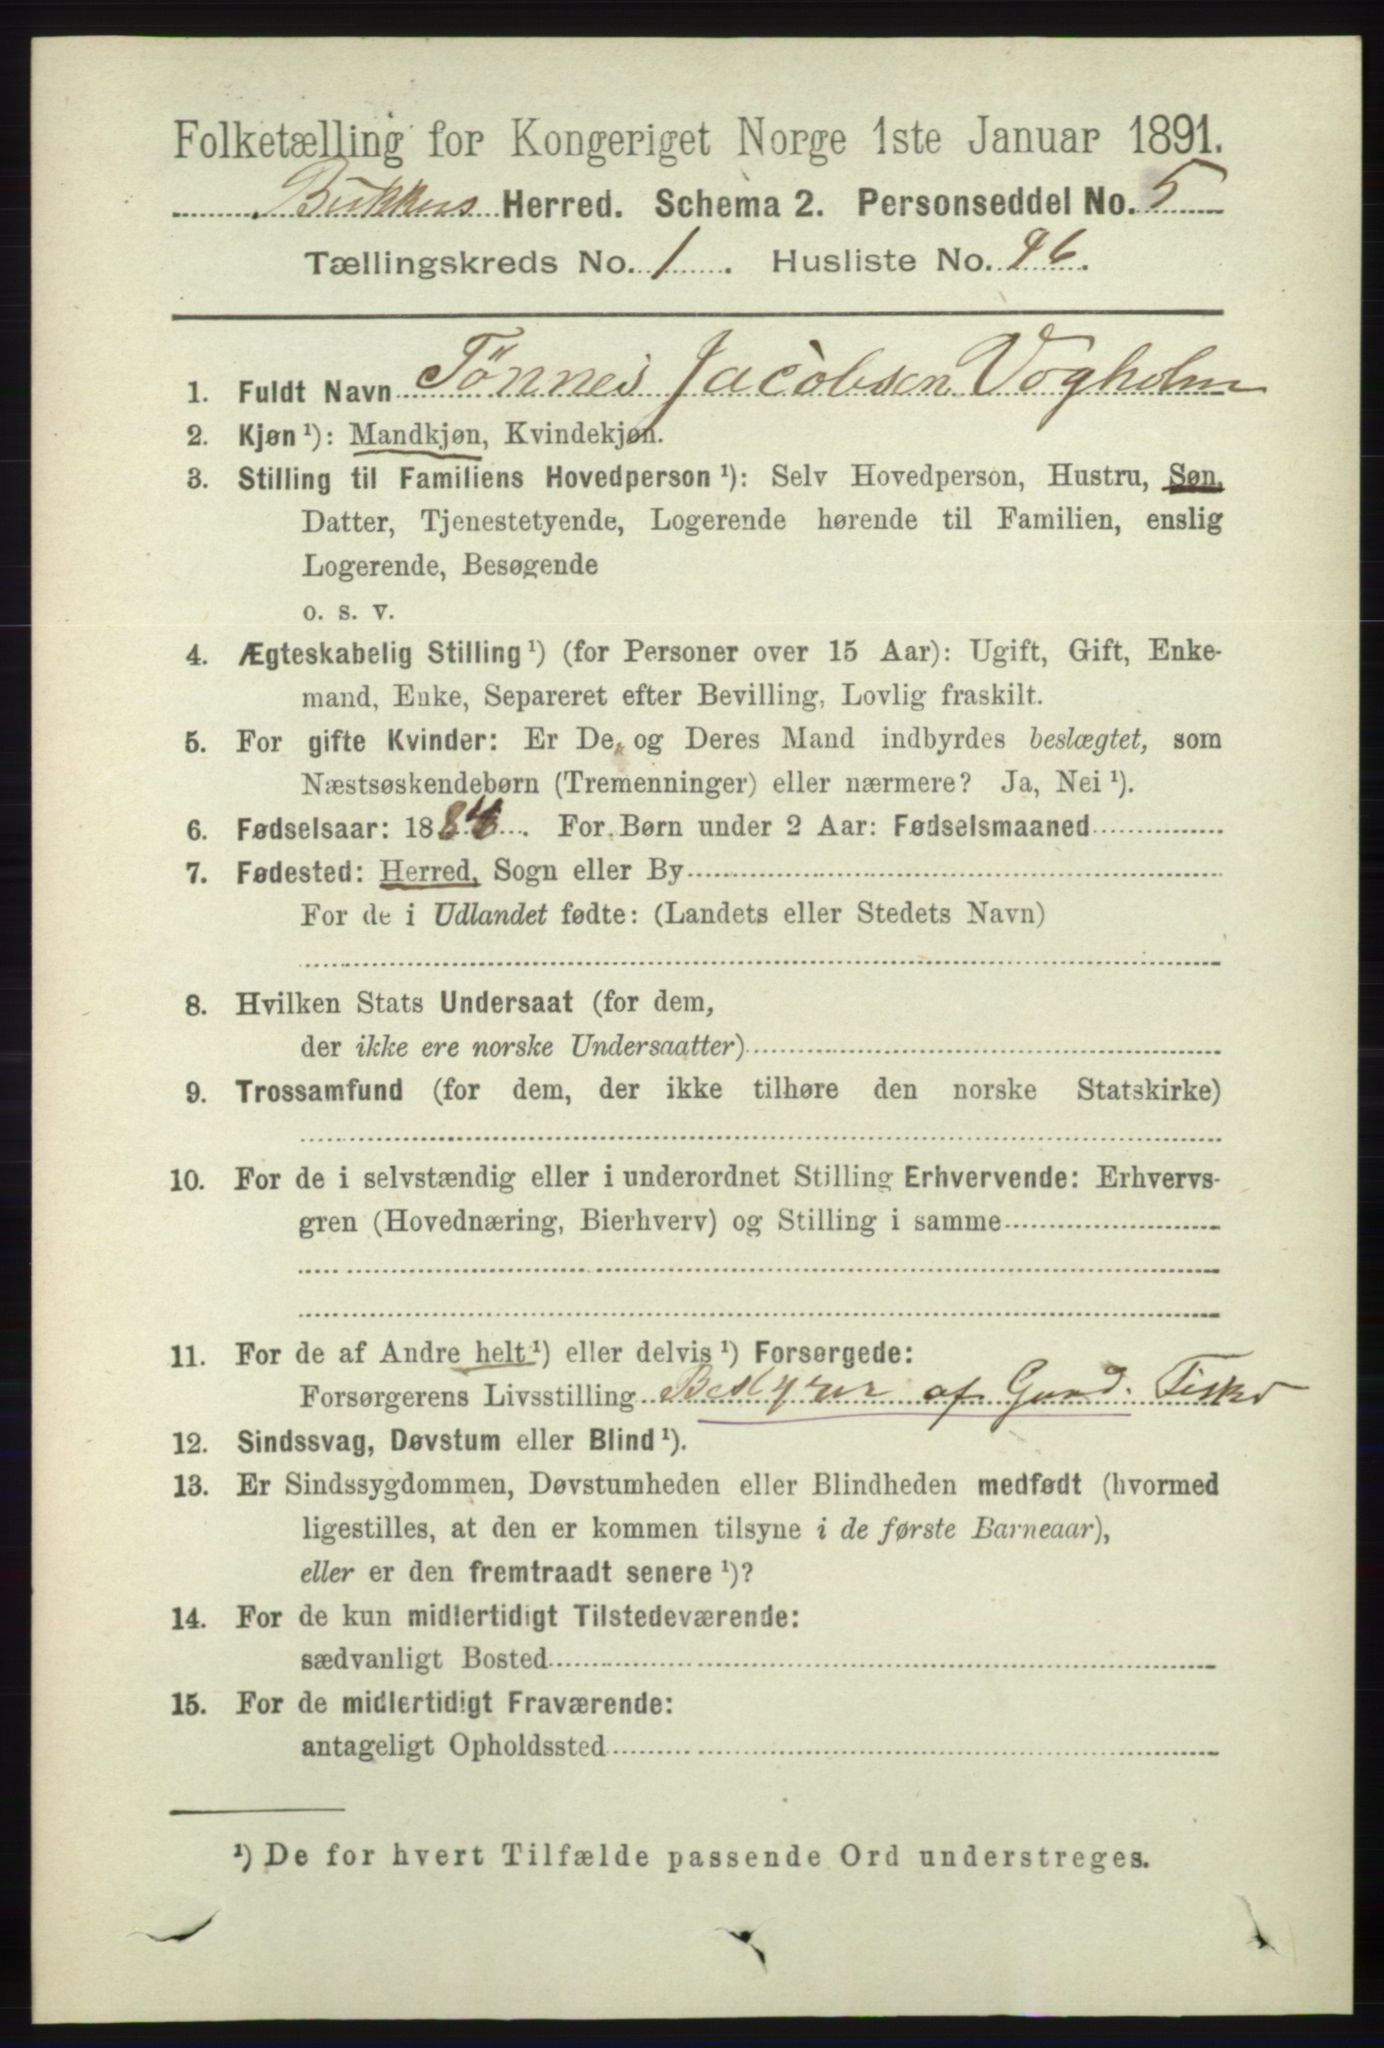 Folketælling for Kongeriget Norge 1ste Januar 1891.
Bukkens Herred. Schema 2. Personseddel No. 5
Tællingskreds No. 1. Husliste No. 96.
1. Fuldt Navn Tønnes Jacobsen Vogholm
2. Kjøn ¹): Mandkjøn, Kvindekjøn.
3. Stilling til Familiens Hovedperson ¹): Selv Hovedperson, Hustru, Søn,
Datter, Tjenestetyende, Logerende hørende til Familien, enslig
Logerende, Besøgende
o. s. v.
4. Ægteskabelig Stilling ¹) (for Personer over 15 Aar): Ugift, Gift, Enke-
mand, Enke, Separeret efter Bevilling, Lovlig fraskilt.
5. For gifte Kvinder: Er De og Deres Mand indbyrdes beslægtet, som
Næstsøskendebørn (Tremenninger) eller nærmere? Ja, Nei ¹).
6. Fødselsaar: 188 . For Børn under 2 Aar: Fødselsmaaned
7. Fødested: Herred, Sogn eller By
For de i Udlandet fødte: (Landets eller Stedets Navn)
8. Hvilken Stats Undersaat (for dem,
der ikke ere norske Undersaatter)
9. Trossamfund (for dem, der ikke tilhøre den norske Statskirke)
10. For de i selvstændig eller i underordnet Stilling Erhvervende: Erhvervs-
gren (Hovednæring, Bierhverv) og Stilling i samme
11. For de af Andre helt ¹) eller delvis ¹) Forsørgede:
Forsørgerens Livsstilling Bestyrer af Gaard. Fisker
12. Sindssvag, Døvstum eller Blind ¹).
13. Er Sindssygdommen, Døvstumheden eller Blindheden medfødt (hvormed
ligestilles, at den er kommen tilsyne i de første Barneaar),
eller er den fremtraadt senere ¹)?
14. For de kun midlertidigt Tilstedeværende:
sædvanligt Bosted
15. For de midlertidigt Fraværende:
antageligt Opholdssted
¹) De for hvert Tilfælde passende Ord understreges.